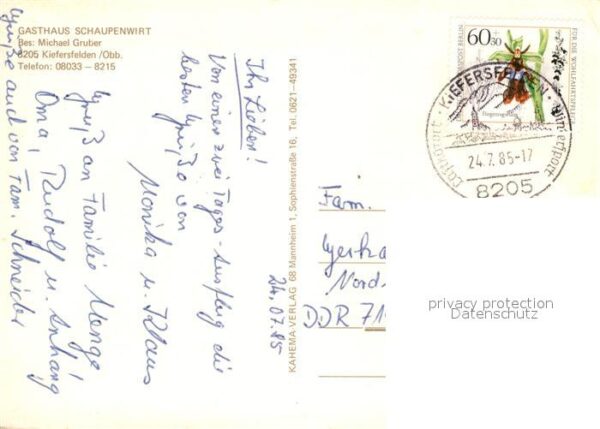 GASTHAUS SCHAUPENWIRT
Bes: Michael Gruber
8205 Kiefersfelden /Obb.
Telefon: 08033 – 8215
Ihr Lieben!
Von einer zwei Tages-Ausflug die
besten Grüße von
Monika u. Klaus
24.07.85
Gruß an Familie Menge
Oma, Rudolf u. Anhang
Grüße auch von Fam. Schneider
KAHEMA-VERLAG 68 Mannheim 1, Sophienstraße 16, Tel. 0621-49341
60+30
FÜR DIE WOHLFAHRTSPFLEGE
KIEFERSFELDEN
24.7.85-17
8205
Fam.
Gerha
Nord-
DDR 71
privacy protection
Datenschutz